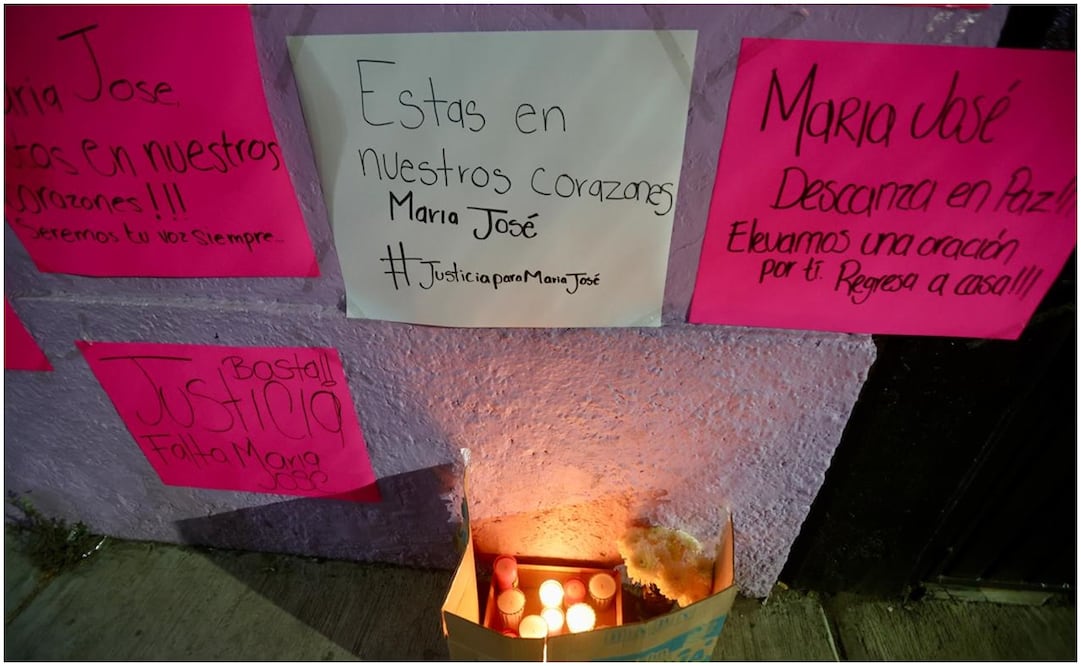 José.
en nuestros
corazones!!!
Seremos tu voz siempre...
Estas en
nuestros corazones
María José
#JusticiaparaMaríaJosé
María José
Descanza en Paz!!
Elevamos una oración
por tí. Regresa a casa!!!
Basta!!
Justicia
Falta María
José